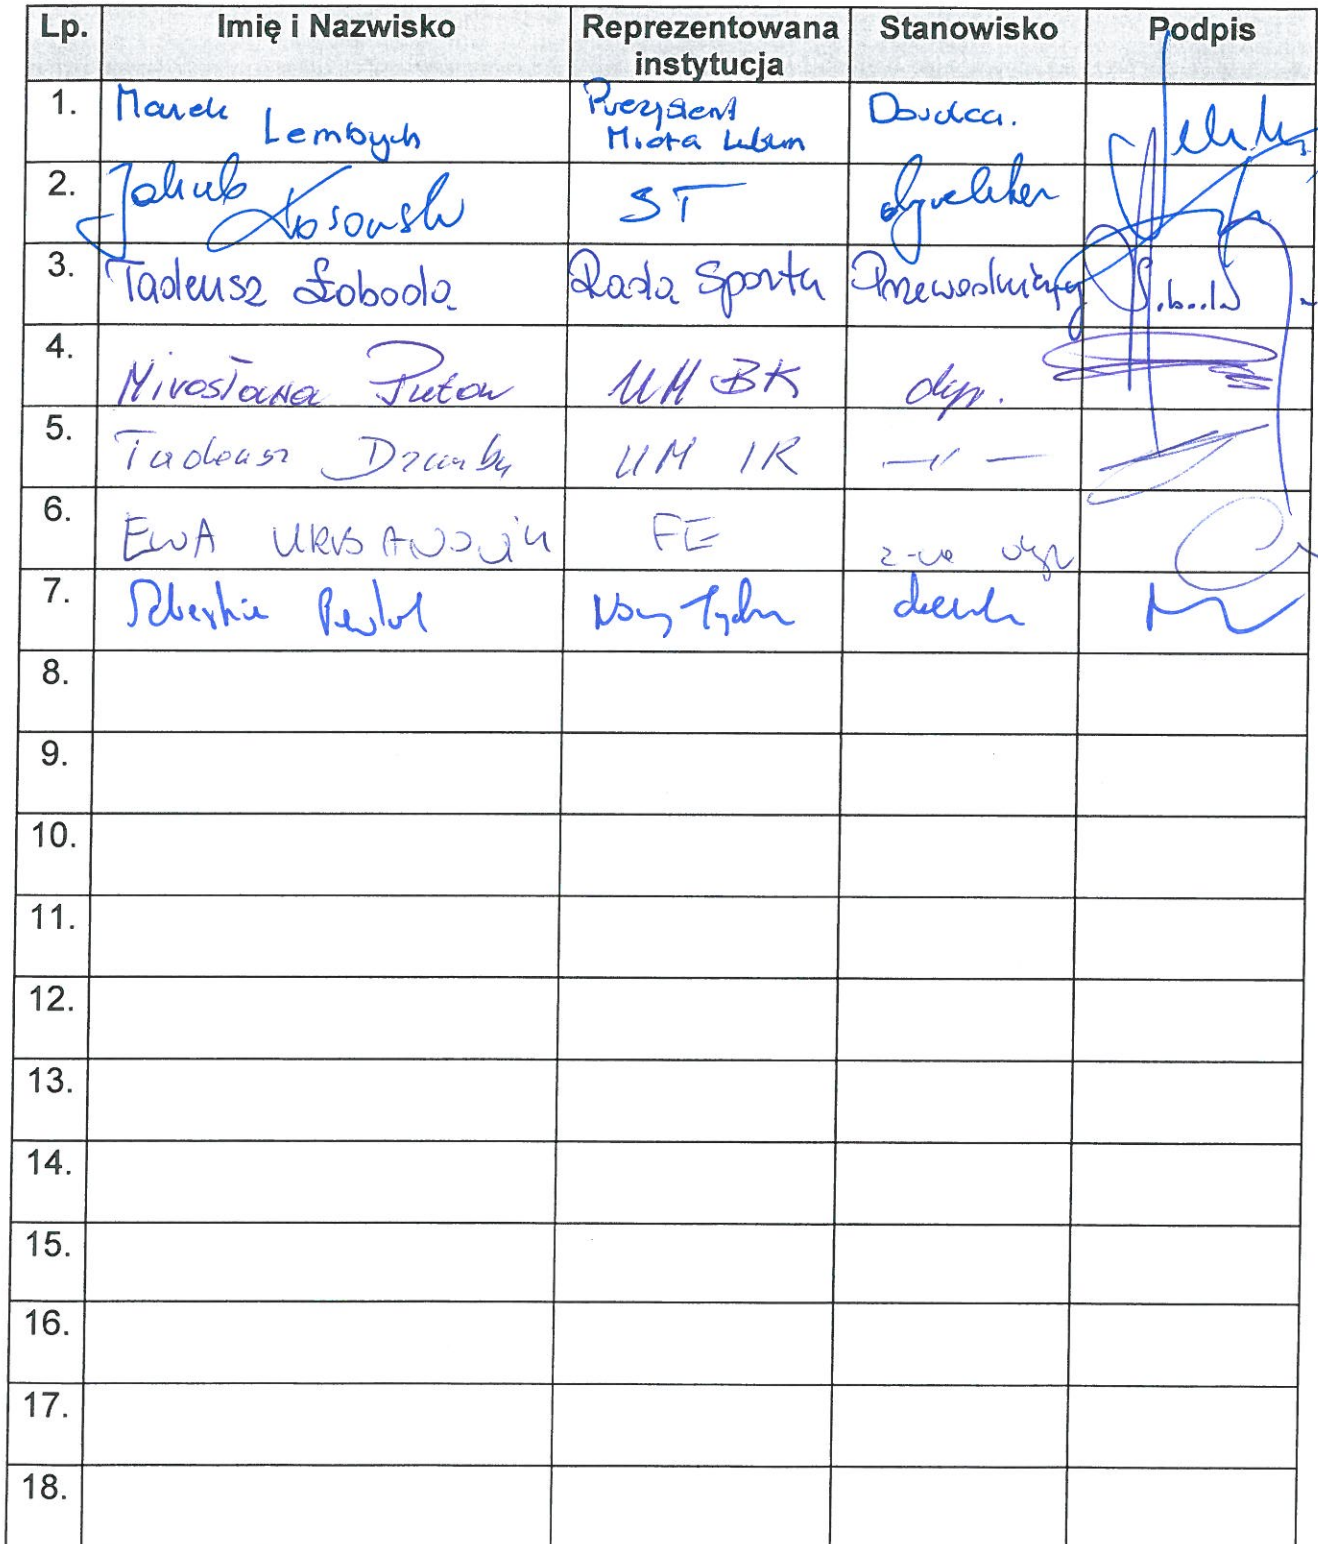 Lp. Imię i Nazwisko Reprezentowana instytucja Stanowisko Podpis
1. Marek Lembrych Prezydent Miasta Lublin Doradca.
2. Jakub Kosowski ST dyrektor
3. Tadeusz Łoboda Rada Sportu Przewodniczący
4. Mirosława Puton UM BK dyr.
5. Tadeusz UM IR —〃—
6. EWA FE z-ca dyr
7. Nowy Tydzień
8.
9.
10.
11.
12.
13.
14.
15.
16.
17.
18.